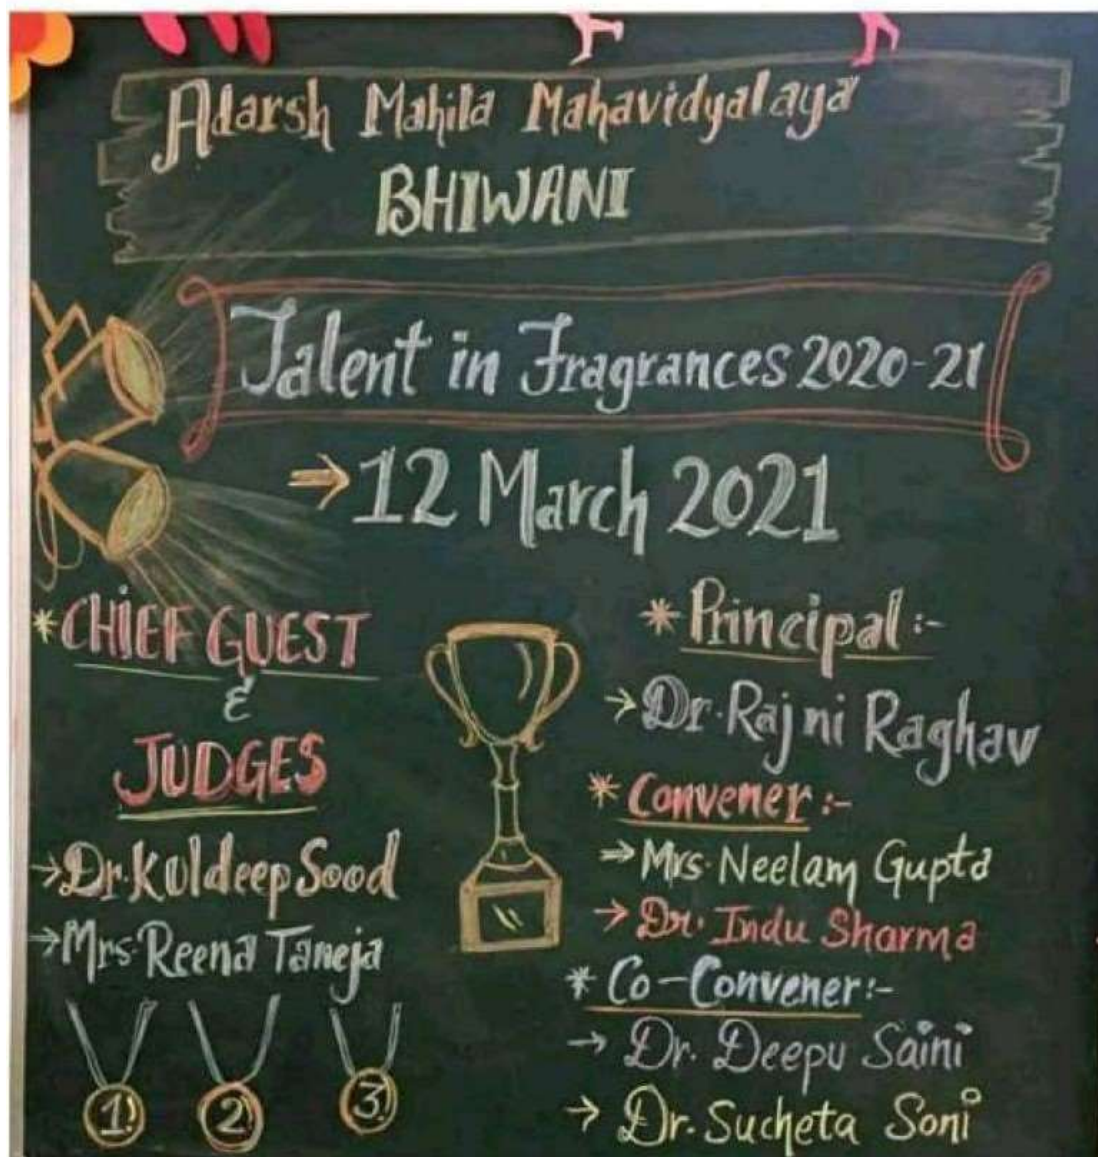 Adarsh Mahila Mahavidyalaya
BHIWANI
Talent in Fragrances 2020-21
→ 12 March 2021
* CHIEF GUEST
&
JUDGES
→ Dr. Kuldeep Sood
→ Mrs. Reena Taneja
1
2
3
* Principal :-
→ Dr. Rajni Raghav
* Convener :-
→ Mrs. Neelam Gupta
→ Dr. Indu Sharma
* Co-Convener:-
→ Dr. Deepu Saini
→ Dr. Sucheta Soni